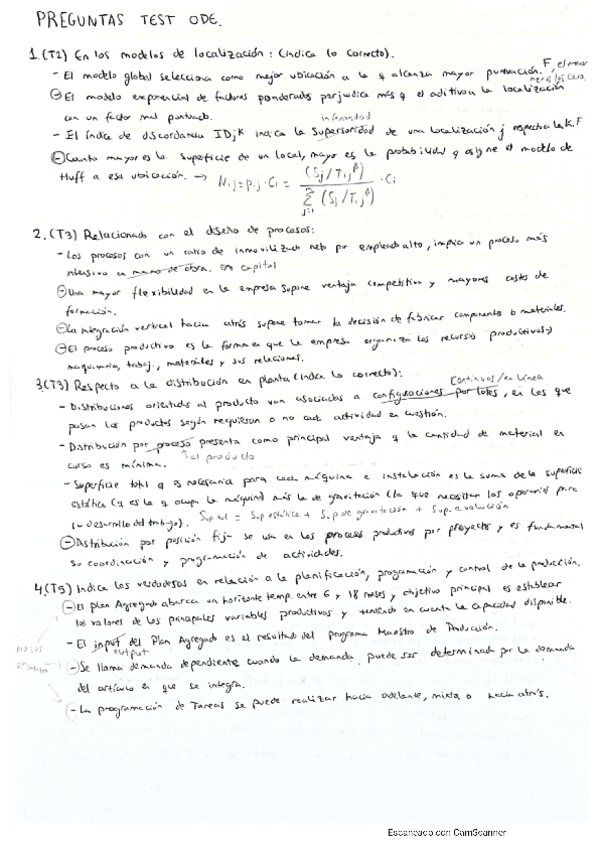 PREGUNTAS TEST ODE.
1.(T2) En los modelos de localización: (indica lo correcto).
- El modelo global selecciona como mejor ubicación a la q alcanza mayor puntuación. F, el menor
- El modelo exponencial de factores ponderados perjudica más q el aditivo a la localización
con un factor mal puntuado.
inferioridad
- El índice de discordancia IDjk indica la superioridad de una localización j respecto a la k. F
- Cuanto mayor es la superficie de un local, mayor es la probabilidad q asigne el modelo de
Huff a esa ubicación. → Nij = Pij · Ci = (Sj / Tij^β) / Σ (Sj / Tij^β) · Ci
j=1
2. (T3) Relacionado con el diseño de procesos:
- Los procesos con un ratio de inmovilizado neto por empleado alto, implica un proceso más
intensivo en mano de obra. en capital
- Una mayor flexibilidad en la empresa supone ventaja competitiva y mayores costes de
formación.
- La integración vertical hacia atrás supone tomar la decisión de fabricar componentes o materiales.
- El proceso productivo es la forma en que la empresa organiza los recursos productivos →
maquinaria, trabaj., materiales y sus relaciones.
3.(T3) Respecto a la distribución en planta (indica lo correcto):
continuos / en línea
- Distribuciones orientadas al producto van asociadas a configuraciones por lotes, en las que
pasan los productos según requieran o no cada actividad en cuestión.
- Distribución por proceso presenta como principal ventaja q la cantidad de material en
curso es mínima. al producto
- Superficie total q es necesaria para cada máquina e instalación es la suma de la superficie
estática (q es la q ocupa la máquina) más la de gravitación (la que necesitan los operarios para
su desarrollo del trabajo). Sup tot = Sup estática + Sup de gravitación + Sup. evolución
- Distribución por posición fija - se usa en los procesos productivos por proyectos y es fundamental
su coordinación y programación de actividades.
4.(T5) Indica las verdaderas en relación a la planificación, programación y control de la producción.
- El plan Agregado abarca un horizonte temp. entre 6 y 18 meses y objetivo principal es establecer
los valores de las principales variables productivas y teniendo en cuenta la capacidad disponible.
- El input del Plan Agregado es el resultado del programa Maestro de Producción.
output
- Se llama demanda dependiente cuando la demanda puede ser determinada por la demanda
del artículo en que se integra.
- La programación de Tareas se puede realizar hacia adelante, mixta o hacia atrás.
Escaneado con CamScanner